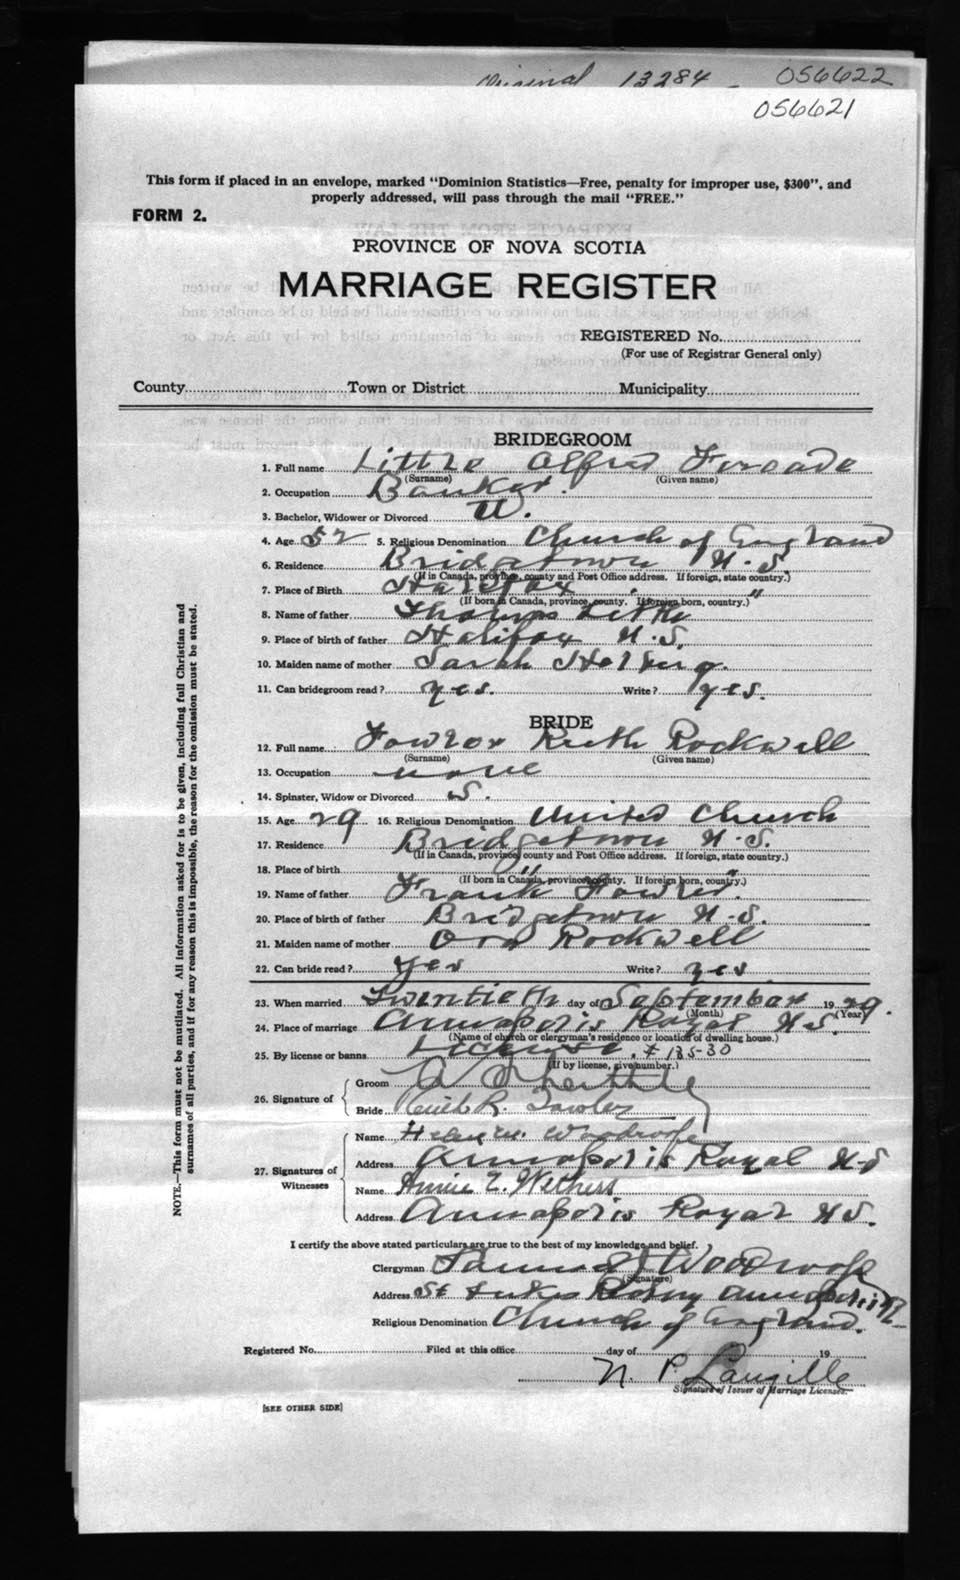 Original 13284 - 056622
056621
This form if placed in an envelope, marked "Dominion Statistics—Free, penalty for improper use, $300", and
properly addressed, will pass through the mail "FREE."
FORM 2.
PROVINCE OF NOVA SCOTIA
MARRIAGE REGISTER
REGISTERED No.
(For use of Registrar General only)
County Town or District Municipality
BRIDEGROOM
1. Full name Little Alfred Forcade
(Surname) (Given name)
2. Occupation Banker.
3. Bachelor, Widower or Divorced W.
4. Age 52 5. Religious Denomination Church of England
6. Residence Bridgetown N.S.
(If in Canada, province, county and Post Office address. If foreign, state country.)
7. Place of Birth Halifax "
(If born in Canada, province, county. If foreign born, country.)
8. Name of father Thomas Little
9. Place of birth of father Halifax N.S.
10. Maiden name of mother Sarah
11. Can bridegroom read? yes. Write? yes.
BRIDE
12. Full name Fowler Ruth Rockwell
(Surname) (Given name)
13. Occupation none
14. Spinster, Widow or Divorced S.
15. Age 29 16. Religious Denomination United Church
17. Residence Bridgetown N.S.
(If in Canada, province, county and Post Office address. If foreign, state country.)
18. Place of birth " "
(If born in Canada, province, county. If foreign born, country.)
19. Name of father Frank Fowler
20. Place of birth of father Bridgetown N.S.
21. Maiden name of mother Ora Rockwell
22. Can bride read? yes Write? yes
23. When married Twentieth day of September 1929.
(Month) (Year)
24. Place of marriage Annapolis Royal N.S.
(Name of church or clergyman's residence or location of dwelling house.)
25. By license or banns License. # 185-30
(If by license, give number.)
26. Signature of
Groom A F Little
Bride Ruth R. Fowler
27. Signatures of Witnesses
Name Helen M. Woodroofe
Address Annapolis Royal N.S
Name Annie E. Withers
Address Annapolis Royal N.S.
I certify the above stated particulars are true to the best of my knowledge and belief.
Clergyman Woodroofe
(Signature)
Address St Lukes Rectory Annapolis R
Religious Denomination Church of England.
Registered No. Filed at this office day of 19
N. P. Langille
Signature of Issuer of Marriage Licenses.
[SEE OTHER SIDE]
NOTE.—This form must not be mutilated. All information asked for is to be given, including full Christian and
surnames of all parties, and if for any reason this is impossible, the reason for the omission must be stated.